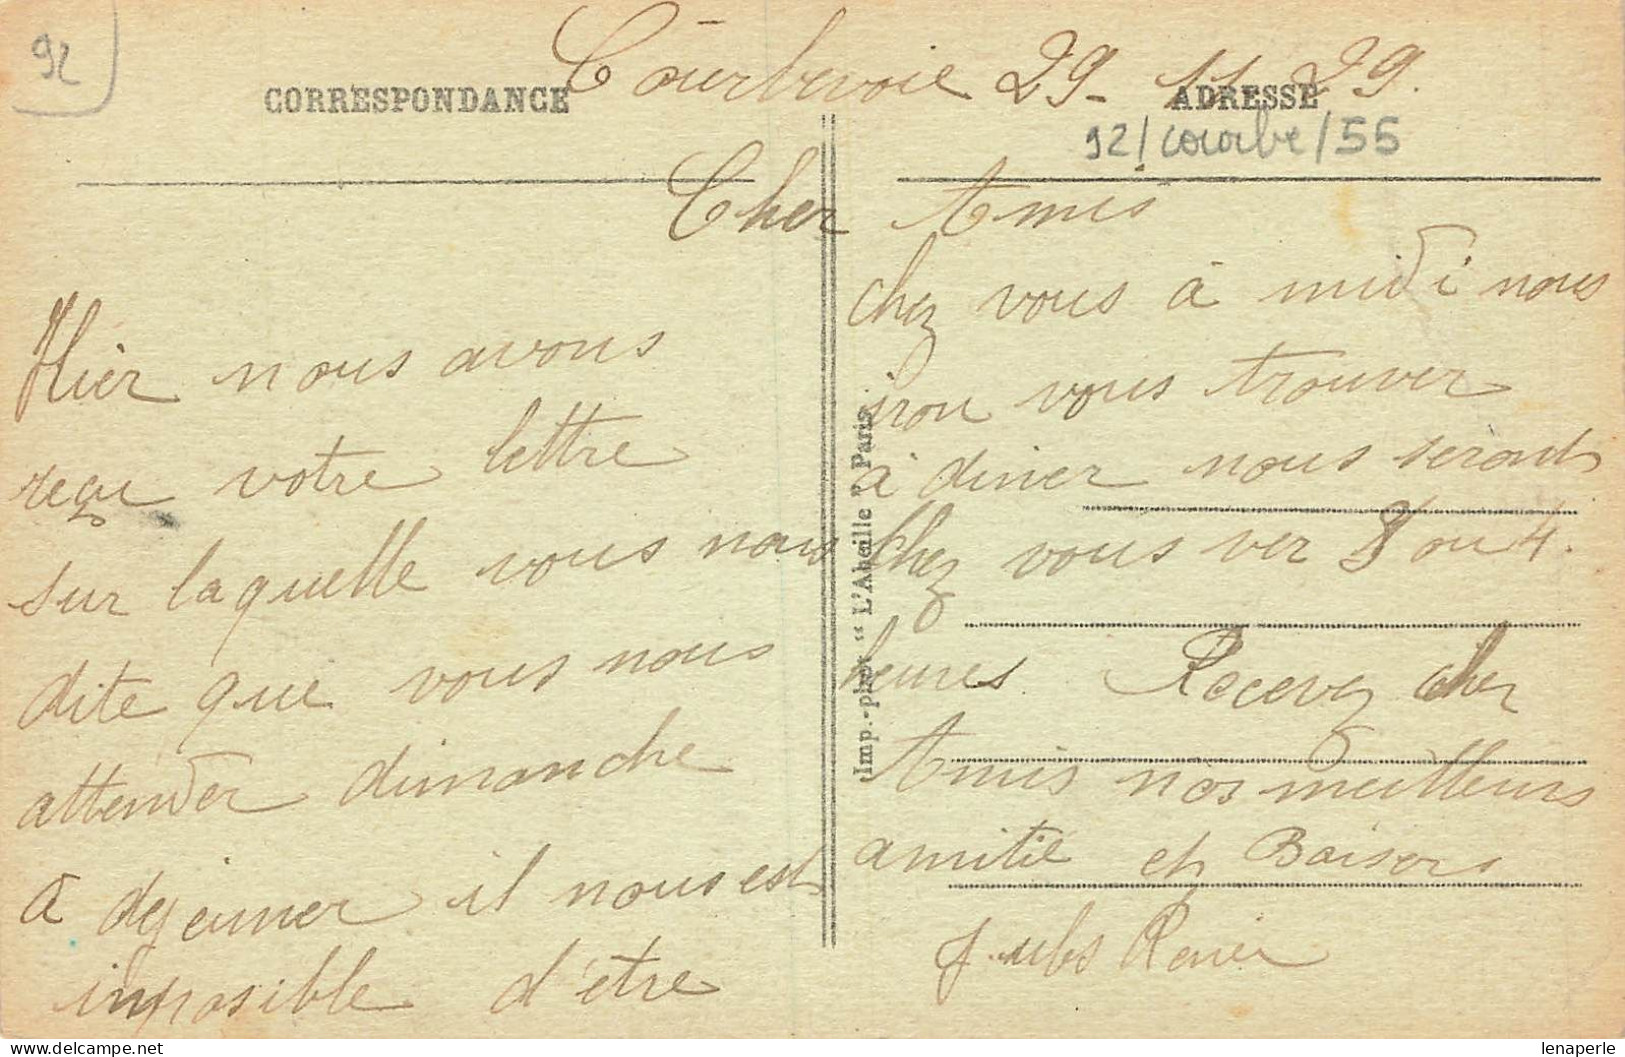 92
CORRESPONDANCE
Courbevoie 29-11 29.
ADRESSE
92/courbe/55
Cher Amis
Hier nous avons
reçu votre lettre
sur laquelle vous nous
dite que vous nous
attender dimanche
a dejeuner il nous est
imposible d'être
chez vous à midi nous
iron vous trouver
à diner nous seront
chez vous ver 3 ou 4.
heures. Recevez cher
Amis nos meilleurs
amitié et Baisers
Jules
Imp.-phot. "L'Abeille" Paris.
lenaperle